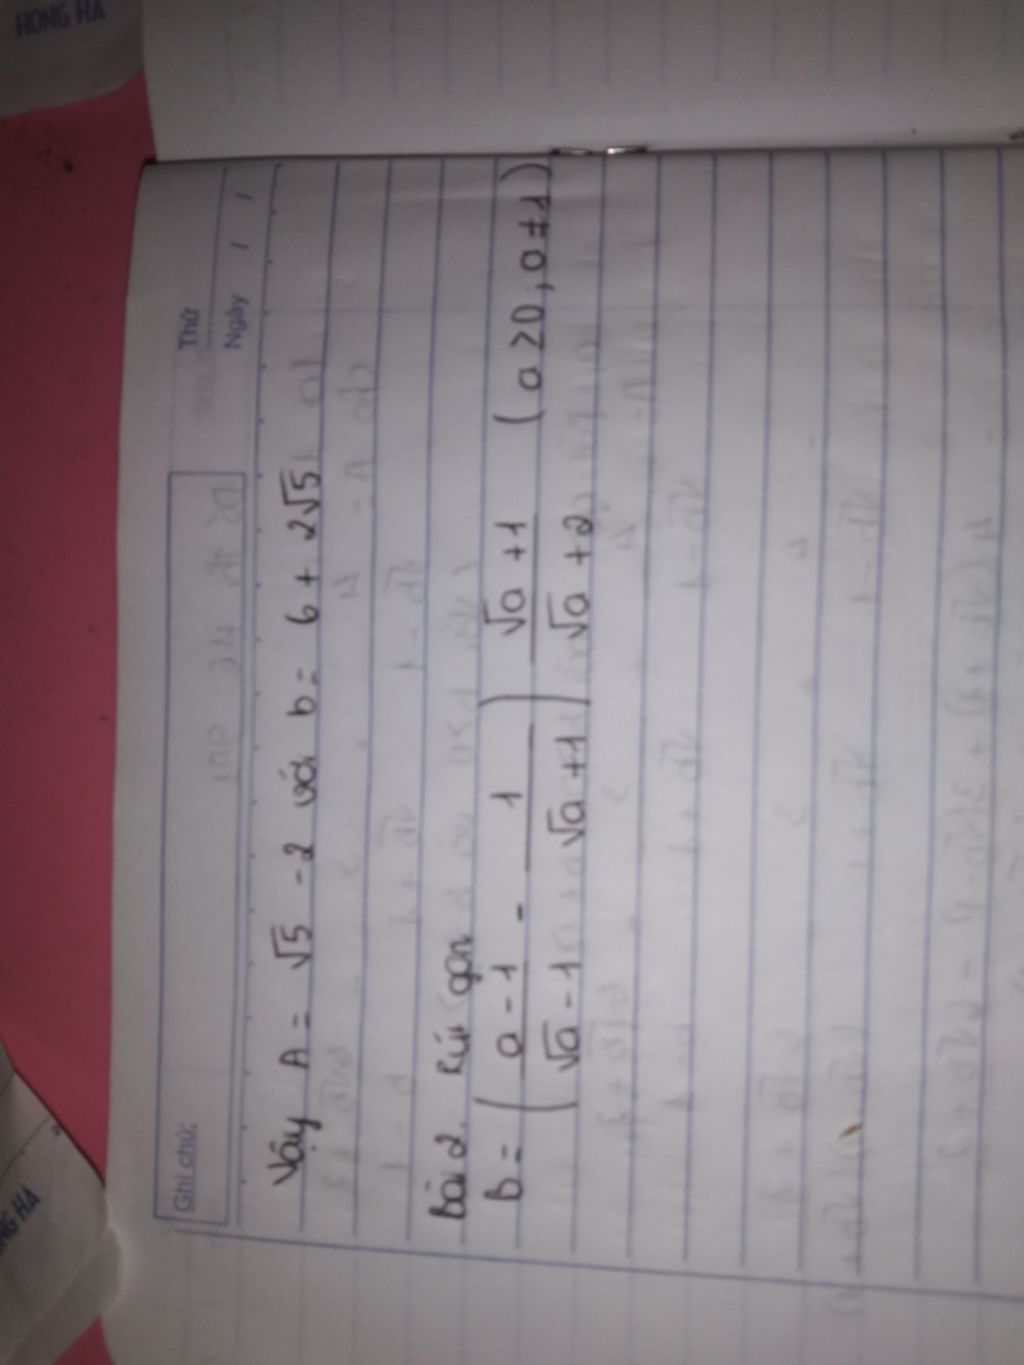 HONG HA
NG HA
Ghi chú:
Thứ
Ngày / /
Vậy A = √5 - 2 với b = 6 + 2√5
Bài 2. Rút gọn
B = ( (a - 1)/(√a - 1) - 1/(√a + 1) ) (√a + 1)/(√a + 2) (a ≥ 0, a ≠ 1)